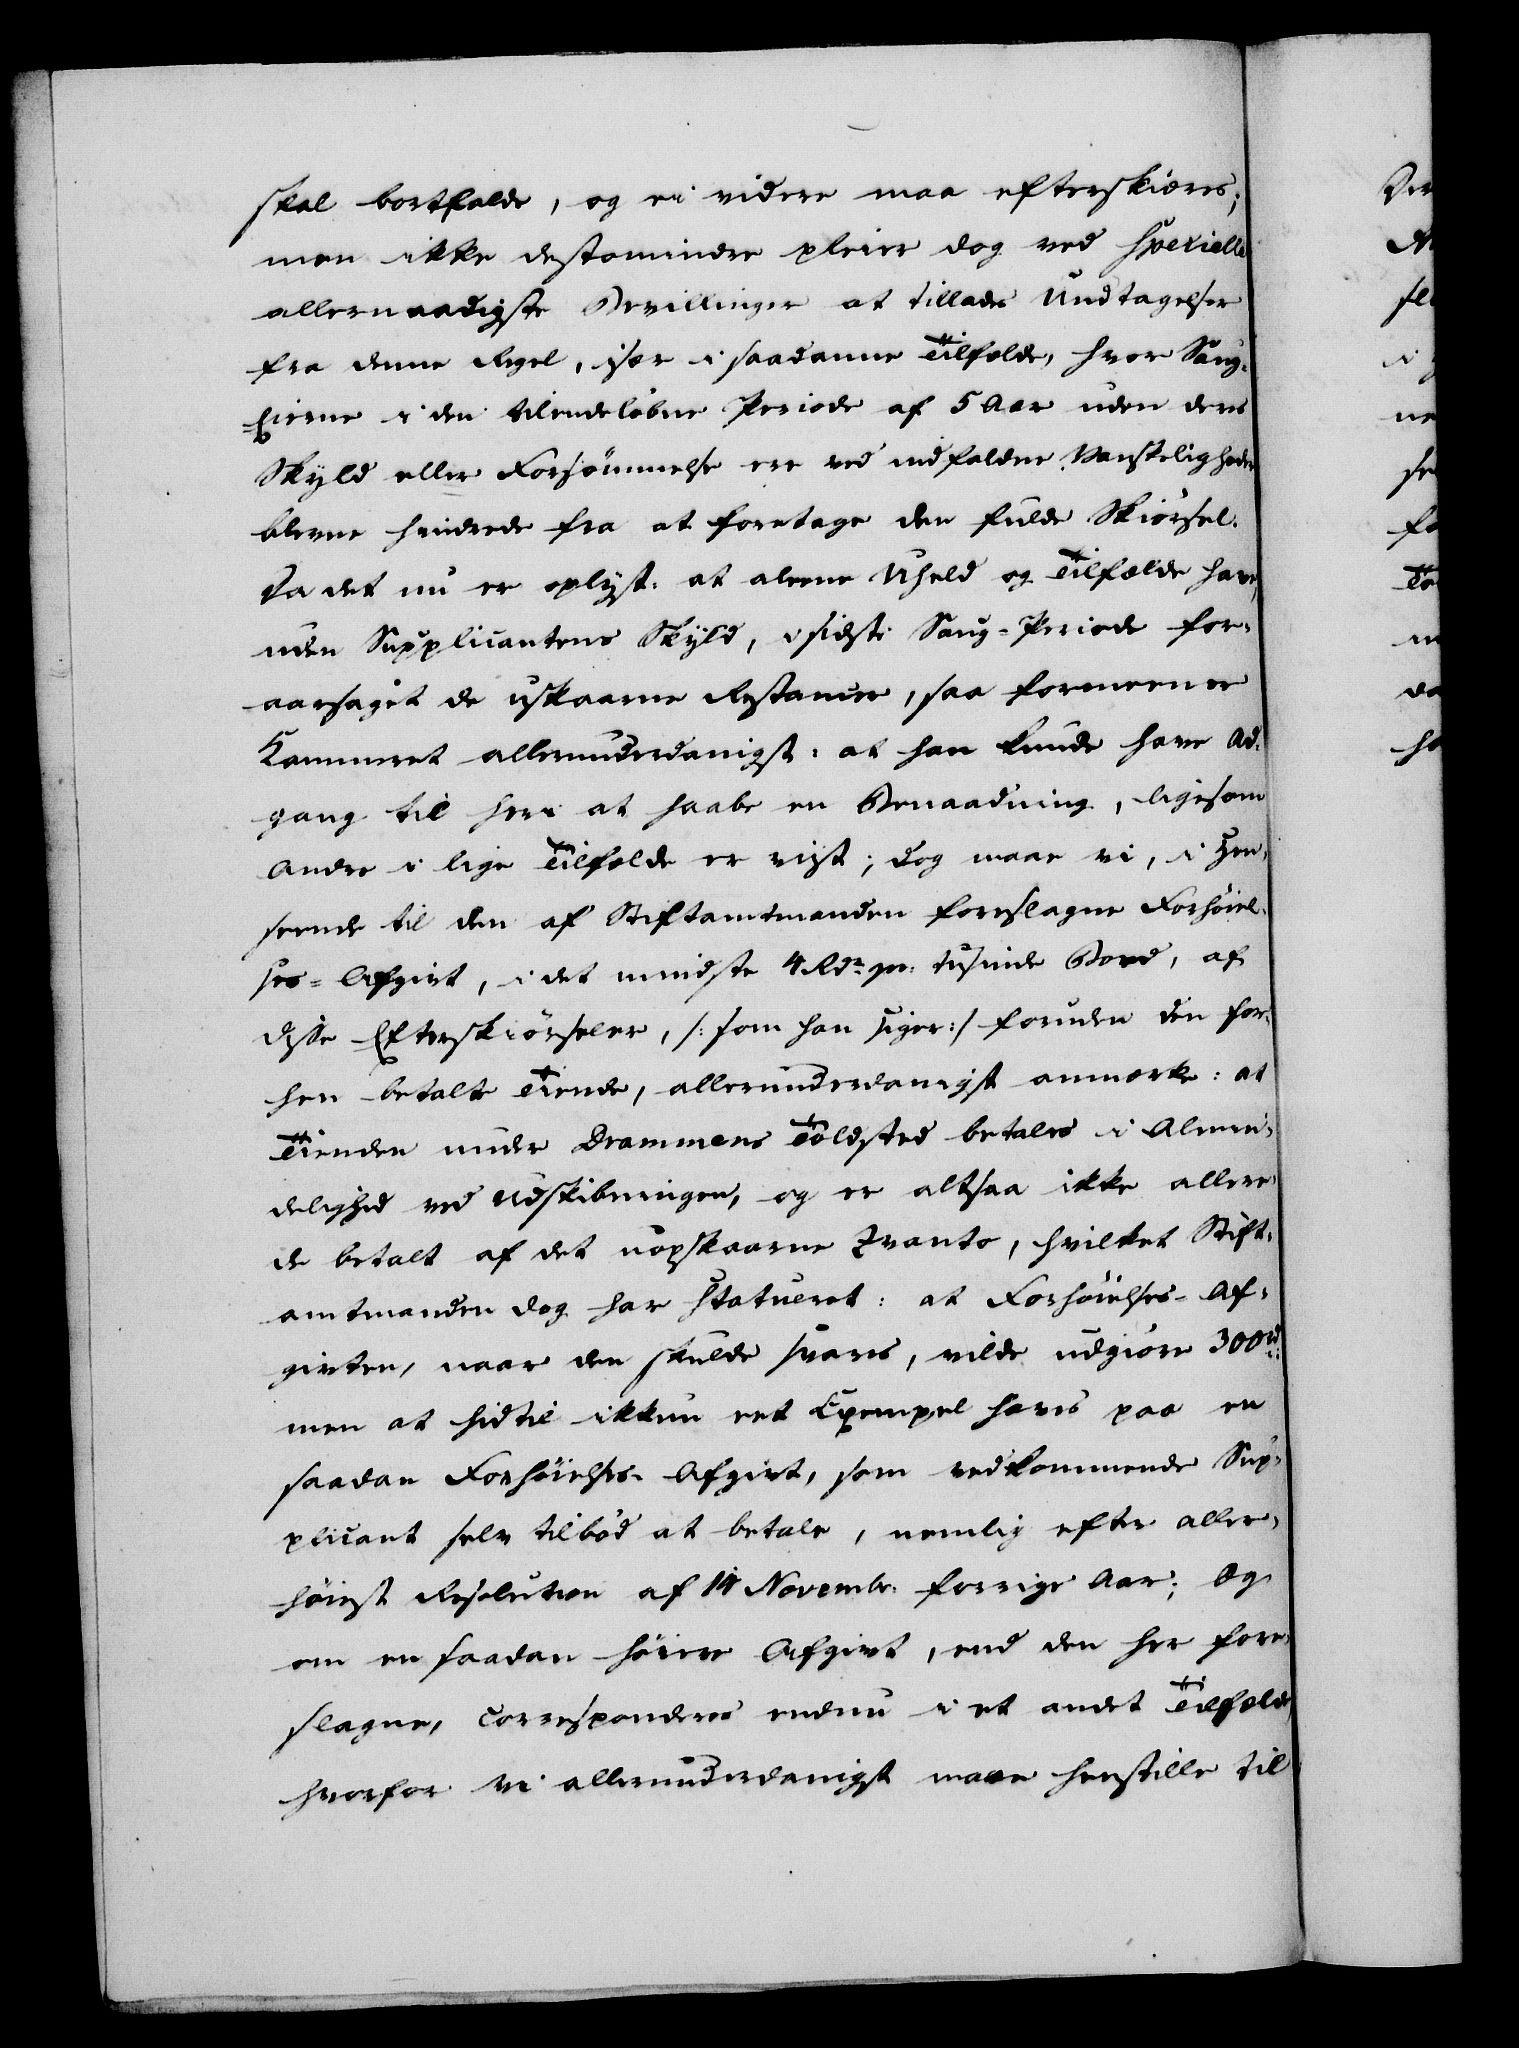 skal bortfalde, og ei videre maa efterskiæres;
men ikke destomindre pleier dog ved specielle
allernaadigste Bevillinger at tillades Undtagelser
fra denne Regel, især i saadanne Tilfælde, hvor Saug-
Eierne i den tilendeløbne Periode af 5 Aar uden deres
Skyld eller Forsømmelse ere ved indfaldne Vanskeligheder
blevne hindrede fra at foretage den fulde Skiørsel.
Da det nu er oplyst: at aleene Uheld og Tilfælde have,
uden Supplicantens Skyld, i sidste Saug-Periode for-
aarsaget de uskaarne Restancer, saa formeener
Kammeret allerunderdanigst: at han kunde have Ad-
gang til heri at haabe en Benaadning, ligesom
Andre i lige Tilfælde er viist; dog maae vi, i Hen-
seende til den af Stiftamtmanden foreslagne Forhøiel-
ses-Afgivt, i det mindste 4 Rdr. pr. tusinde Bord, af
disse Efterskiørseler, /: som han siger :/ foruden den for-
hen betalte Tiende, allerunderdanigst anmærke: at
Tienden under Drammens Toldsted betales i Almin-
delighed ved Udskibningen, og er altsaa ikke allere-
de betalt af det uopskaarne Qvanto, hvilket Stift-
amtmanden dog har statueret: at Forhøielses-Af-
givten, naar den skulde svares, vilde udgiøre 300 rd.
men at hidtil ikkun eet Exempel haves paa en
saadan Forhøielses-Afgivt, som vedkommende Sup-
plicant selv tilbød at betale, nemlig efter aller-
høiest Resolution af 14 Novembr. forrige Aar; Og
om en saadan høiere Afgivt, end den her fore-
slagne, corresponderes endnu i et andet Tilfælde
hvorfor vi allerunderdanigst maae henstille til